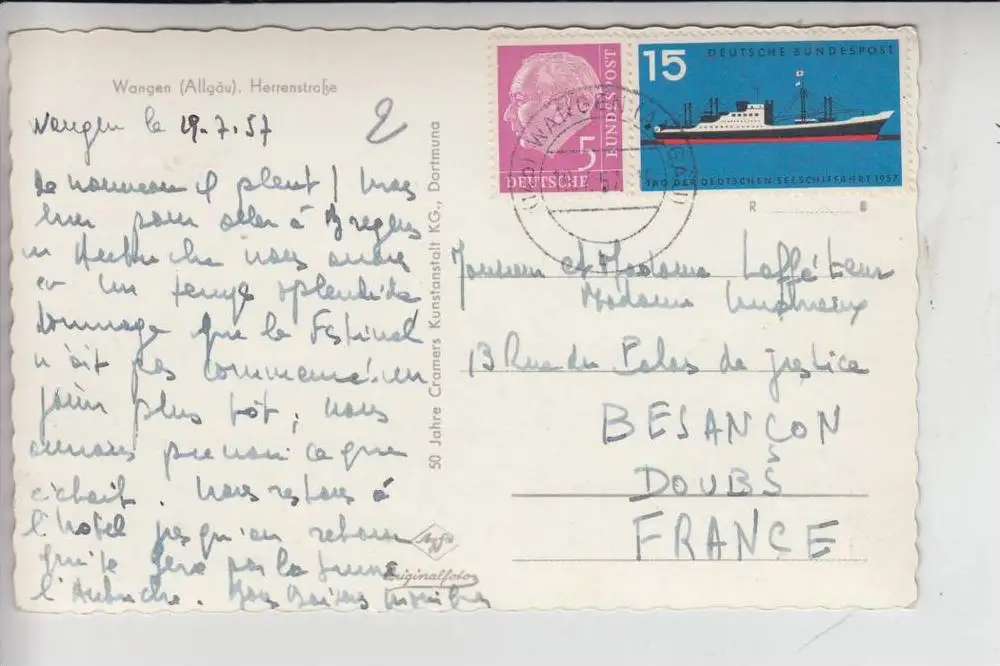 Wangen (Allgäu), Herrenstraße
Wangen le 19.7.57
2
de nouveau il pleut! mais
hier pour aller à Bregenz
en Autriche nous avons
eu un temps splendide
dommage que le Festival
n'ait pas commencé un
jour plus tôt, nous
aurions ce que
c'était. nous restons à
l'hôtel jusqu'au retour
qui se fera par la
l'Autriche. Bons Baisers
50 Jahre Cramers Kunstanstalt KG., Dortmund
Agfa
Originalfoto
5
DEUTSCHE
BUNDESPOST
15
DEUTSCHE BUNDESPOST
TAG DER DEUTSCHEN SEESCHIFFAHRT 1957
WANGEN (ALLGÄU)
R B
Monsieur et Madame
Madame
13 Rue du Palais de justice
BESANÇON
DOUBS
FRANCE